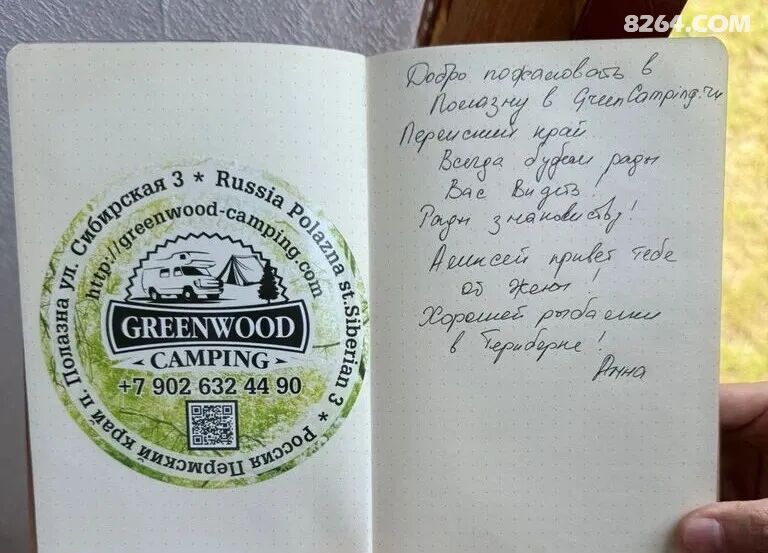 8264.COM
Россия Пермский край п. Полазна ул. Сибирская 3 * Russia Polazna st.Siberian 3 *
http://greenwood-camping.com
GREENWOOD
CAMPING
+7 902 632 44 90
Добро пожаловать в
Полазну в GreenCamping.ru
Пермский край
Всегда будем рады
Вас видеть!
Рады знакомству!
Алексей привет тебе
от Жени!
Хорошей рыбалки
в Териберке!
Анна